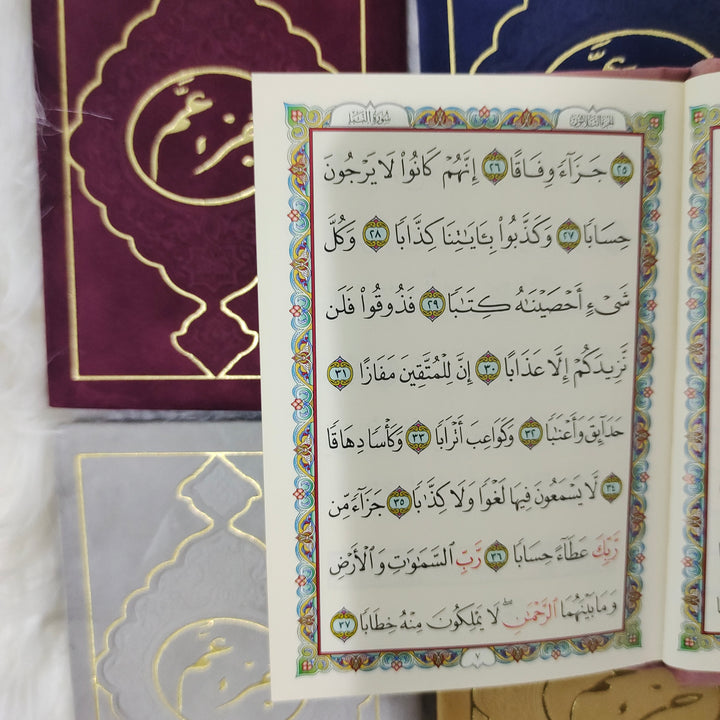 جزء عم
سُورَةُ النَّبَإِ
الجزء الثلاثون
٢٥ جَزَآءً وِفَاقًا ٢٦ إِنَّهُمْ كَانُوا۟ لَا يَرْجُونَ
حِسَابًا ٢٧ وَكَذَّبُوا۟ بِـَٔايَـٰتِنَا كِذَّابًا ٢٨ وَكُلَّ
شَىْءٍ أَحْصَيْنَـٰهُ كِتَـٰبًا ٢٩ فَذُوقُوا۟ فَلَن
نَّزِيدَكُمْ إِلَّا عَذَابًا ٣٠ إِنَّ لِلْمُتَّقِينَ مَفَازًا ٣١
حَدَآئِقَ وَأَعْنَـٰبًا ٣٢ وَكَوَاعِبَ أَتْرَابًا ٣٣ وَكَأْسًا دِهَاقًا
٣٤ لَّا يَسْمَعُونَ فِيهَا لَغْوًا وَلَا كِذَّٰبًا ٣٥ جَزَآءً مِّن
رَّبِّكَ عَطَآءً حِسَابًا ٣٦ رَّبِّ ٱلسَّمَـٰوَٰتِ وَٱلْأَرْضِ
وَمَا بَيْنَهُمَا ٱلرَّحْمَـٰنِ ۖ لَا يَمْلِكُونَ مِنْهُ خِطَابًا ٣٧
٧
جزء عم